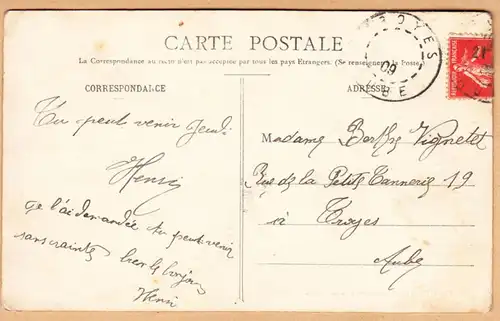 CARTE POSTALE
La Correspondance au recto n'est pas acceptée par tous les pays Étrangers. (Se renseigner à la Poste)
CORRESPONDANCE
ADRESSE
TROYES
09
AUBE
21
REPUBLIQUE FRANÇAISE
Tu peut venir Jeudi
Henri
Je l'ai demandée tu peut venir
sans crainte bien le bonjour
Henri
Madame Berthe Vignetet
Rue de la Petite Tannerie 19
à Troyes
Aube